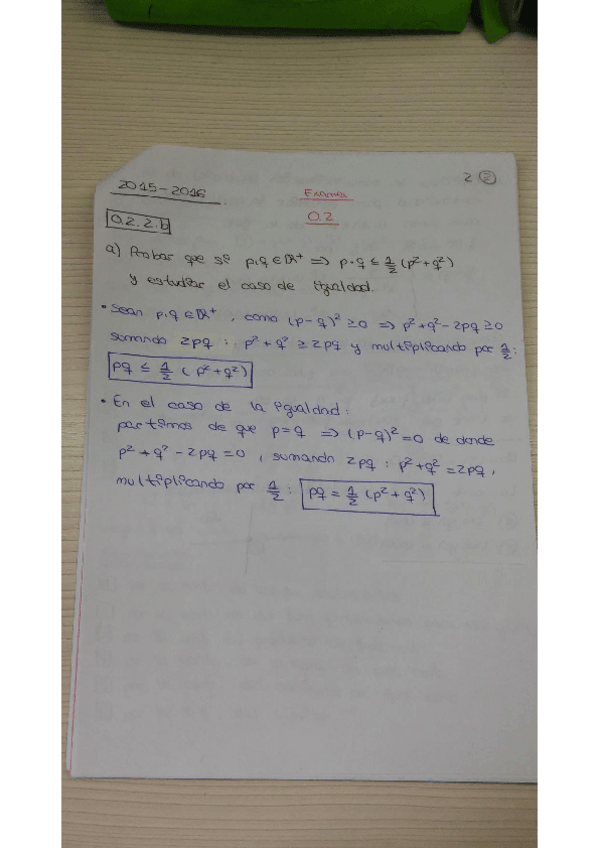 2 ②
2015-2016
Examen
0.2
0.2.2.b
a) Probar que si p,q ∈ ℝ⁺ ⇒ p·q ≤ 1/2 (p²+q²)
y estudiar el caso de igualdad.
• Sean p,q ∈ ℝ⁺, como (p-q)² ≥ 0 ⇒ p²+q²-2pq ≥ 0
sumando 2pq : p²+q² ≥ 2pq y multiplicando por 1/2 :
pq ≤ 1/2 (p²+q²)
• En el caso de la igualdad:
partimos de que p=q ⇒ (p-q)²=0 de donde
p²+q²-2pq=0, sumando 2pq : p²+q²=2pq,
multiplicando por 1/2 : pq = 1/2 (p²+q²)